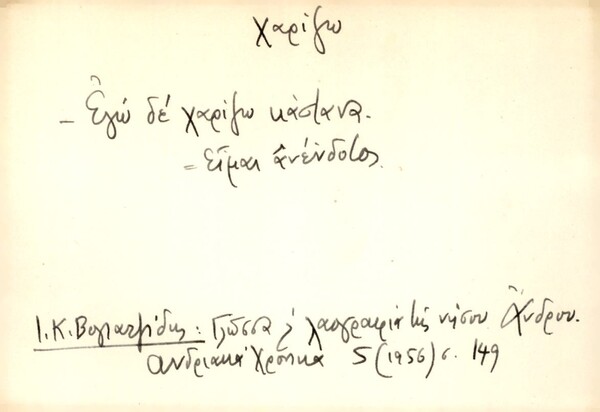 χαρίζω
– Ἐγώ δέ χαρίζω κάστανα.
= Εἶμαι ἀνένδοτος.
Ι. Κ. Βογιατζίδης: Γλῶσσα & λαογραφία τῆς νήσου Ἄνδρου.
Ἀνδριακά Χρονικά 5 (1956) σ. 149